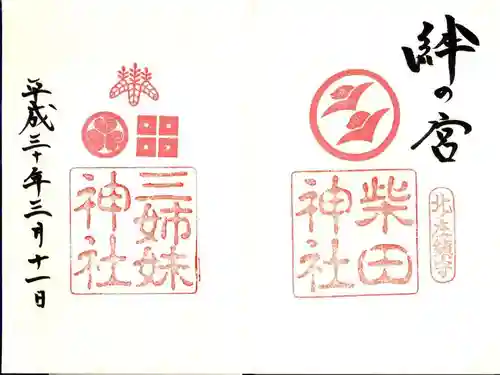 絆の宮
北ノ庄鎮守
柴田
神社
三姉妹
神社
平成三十年三月十一日